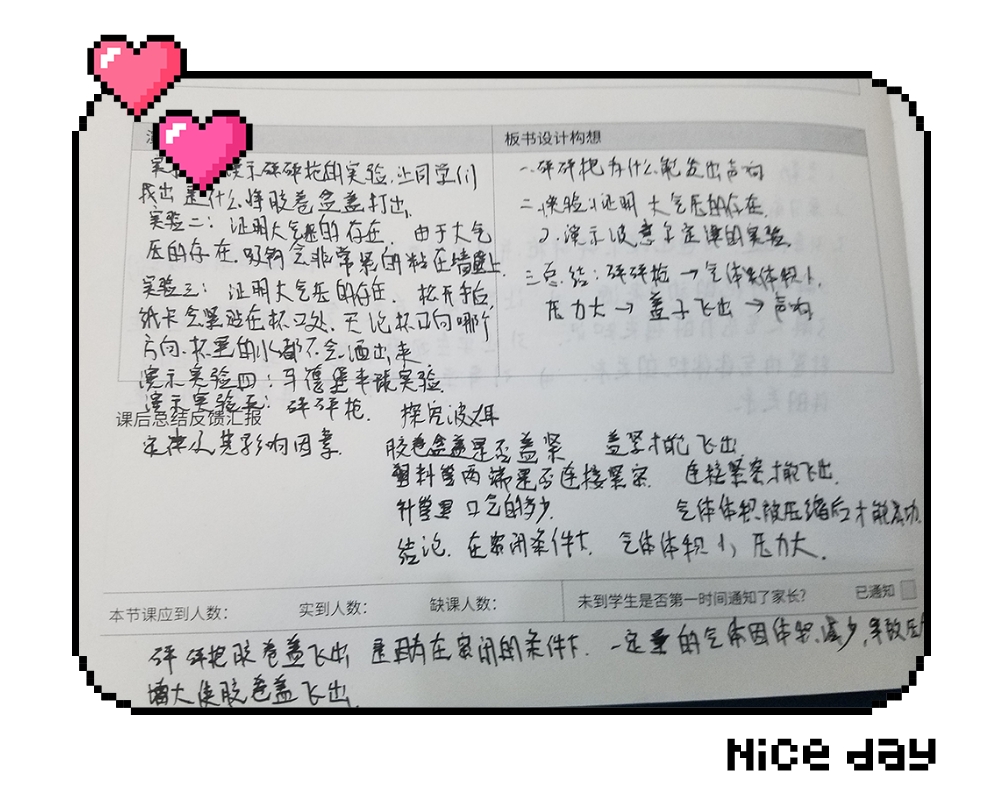 演示砰砰枪的实验,让同学们
找出是什么将胶卷盒盖打出,
实验二:证明大气压的存在,由于大气
压的存在,吸钩会非常紧的粘在墙壁上.
实验三:证明大气压的存在,松开手后
纸卡会紧贴在杯口处,无论杯口向哪个
方向,杯里的水都不会洒出来
演示实验四:马德堡半球实验
演示实验五:砰砰枪. 探究波耳
定律及其影响因素.
板书设计构想
一.砰砰枪为什么能发出声响
二.1.实验:证明大气压的存在.
2.演示波意尔定律的实验.
三.总结:砰砰枪→气体体积小,
压力大→盖子飞出→声响
课后总结反馈汇报
胶卷盒盖是否盖紧 盖紧才能飞出
塑料管两端是否连接紧密. 连接紧密才能飞出.
针管里空气的多少. 气体体积被压缩后才能成功.
结论. 在密闭条件下. 气体体积小,压力大.
本节课应到人数: 实到人数: 缺课人数: 未到学生是否第一时间通知了家长? 已通知
砰砰枪胶卷盖飞出 是因为在密闭的条件下.一定量的气体因体积减少,导致压
增大使胶卷盖飞出.
Nice day